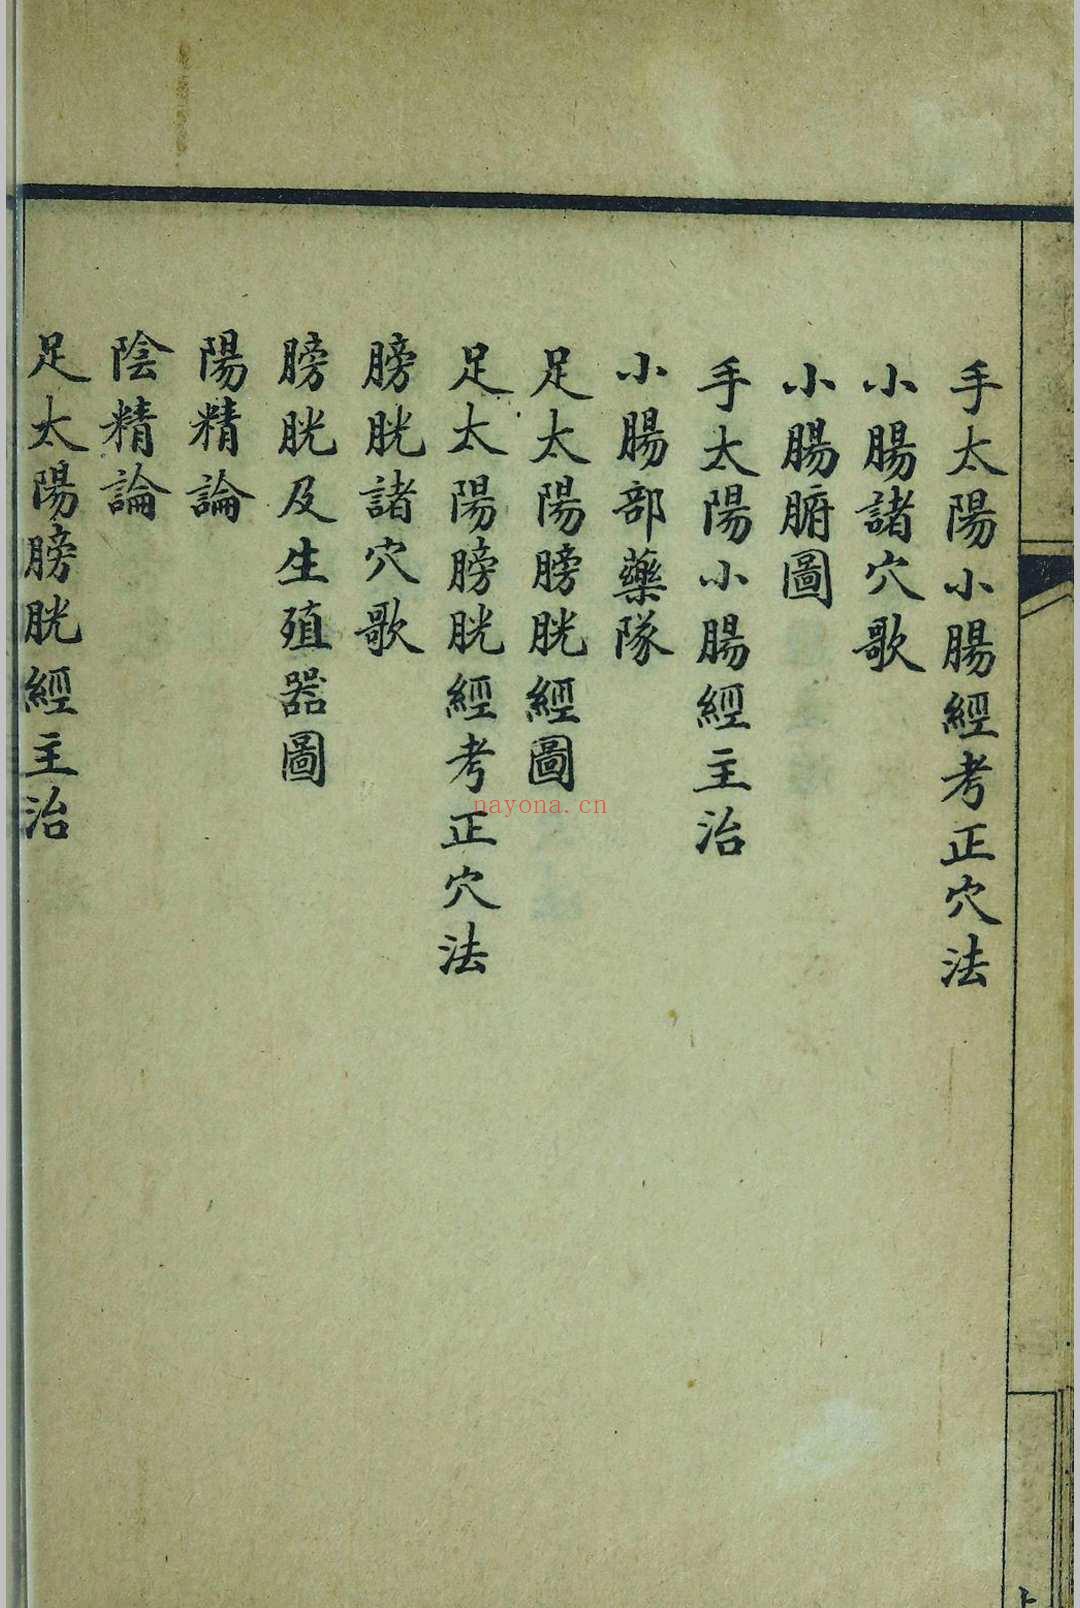 手太陽小腸經考正穴法
小腸諸穴歌
小腸腑圖
手太陽小腸經主治
小腸部藥隊
足太陽膀胱經圖
足太陽膀胱經考正穴法
膀胱諸穴歌
膀胱及生殖器圖
陽精論
陰精論
足太陽膀胱經主治
nayona.cn